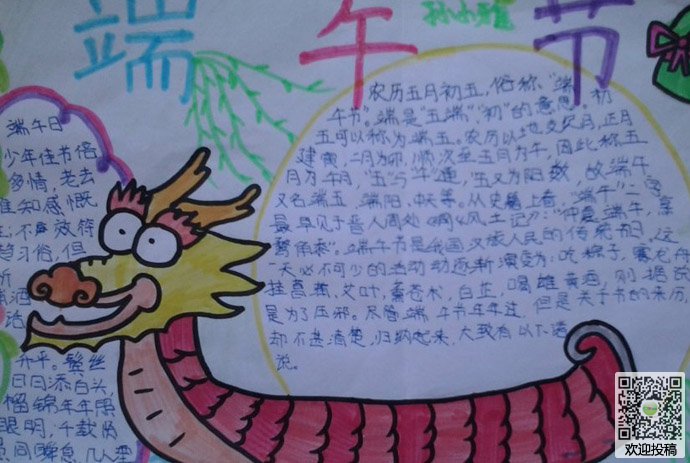 端午节
孙小雅
端午日
少年佳节倍
多情,老去
谁知感慨
生;不效艾符
趋习俗,但
祈
酒
话
升平。鬓丝
日日添白头
榴锦年年照
眼明;千载贤
愚同瞬息,几人
农历五月初五,俗称"端
午节"。端是"五端""初"的意思,初
五可以称为端五。农历以地支纪月,正月
建寅,二月为卯,顺次至五月为午,因此称五
月为午月,"五"与"午"通,"五"又为阳数,故端午
又名端五、端阳、中天等。从史籍上看,"端午"二字
最早见于晋人周处《风土记》:"仲夏端午,烹
鹜角黍"。端午节是我国汉族人民的传统节日。这
一天必不可少的活动逐渐演变为:吃粽子,赛龙舟,
挂菖蒲、艾叶,薰苍术、白芷,喝雄黄酒。则据说
是为了压邪。尽管端午节年年过,但是关于节的来历,
却不甚清楚,归纳起来,大致有以下诸
说。
欢迎投稿